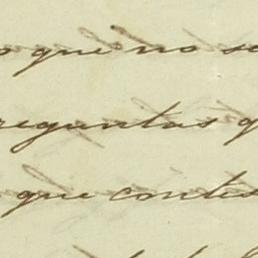 o que no se
reguntas q
que contes